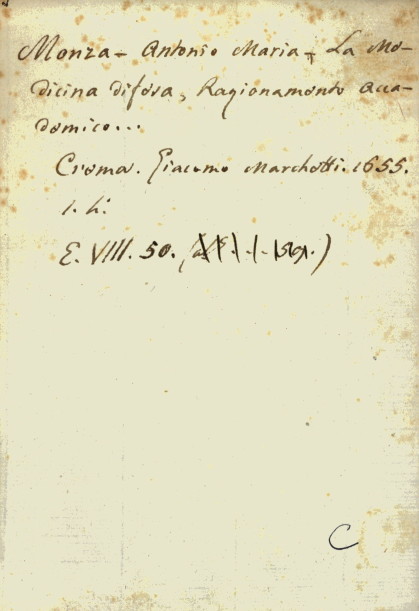 Monza - Antonio Maria - La Me-
dicina difesa, Ragionamento Acca-
demico...
Crema. Giacomo Marchetti. 1655.
E. VIII. 50.
C